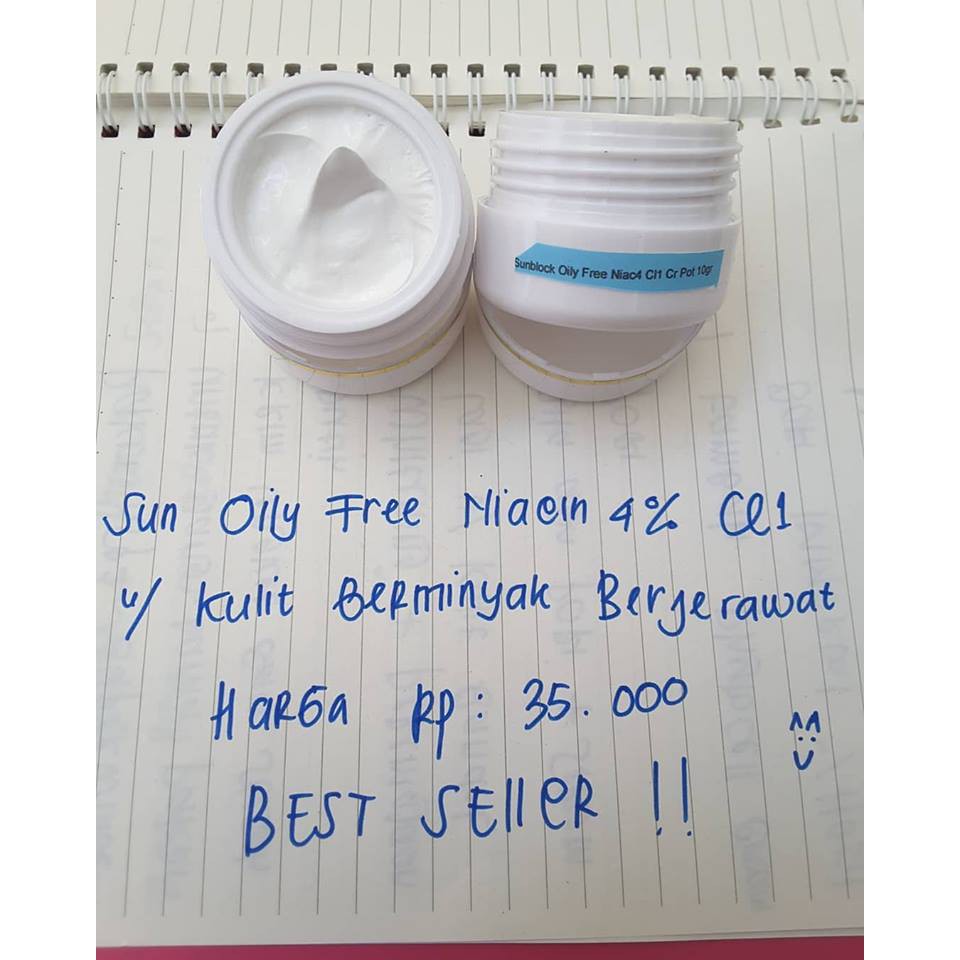 Sunblock Oily Free Niac4 Cl1 Cr Pot 10gr
Sun Oily Free Niacin 4% Cl1
u/ Kulit Berminyak Berjerawat
Harga Rp : 35.000
BEST SElleR !!